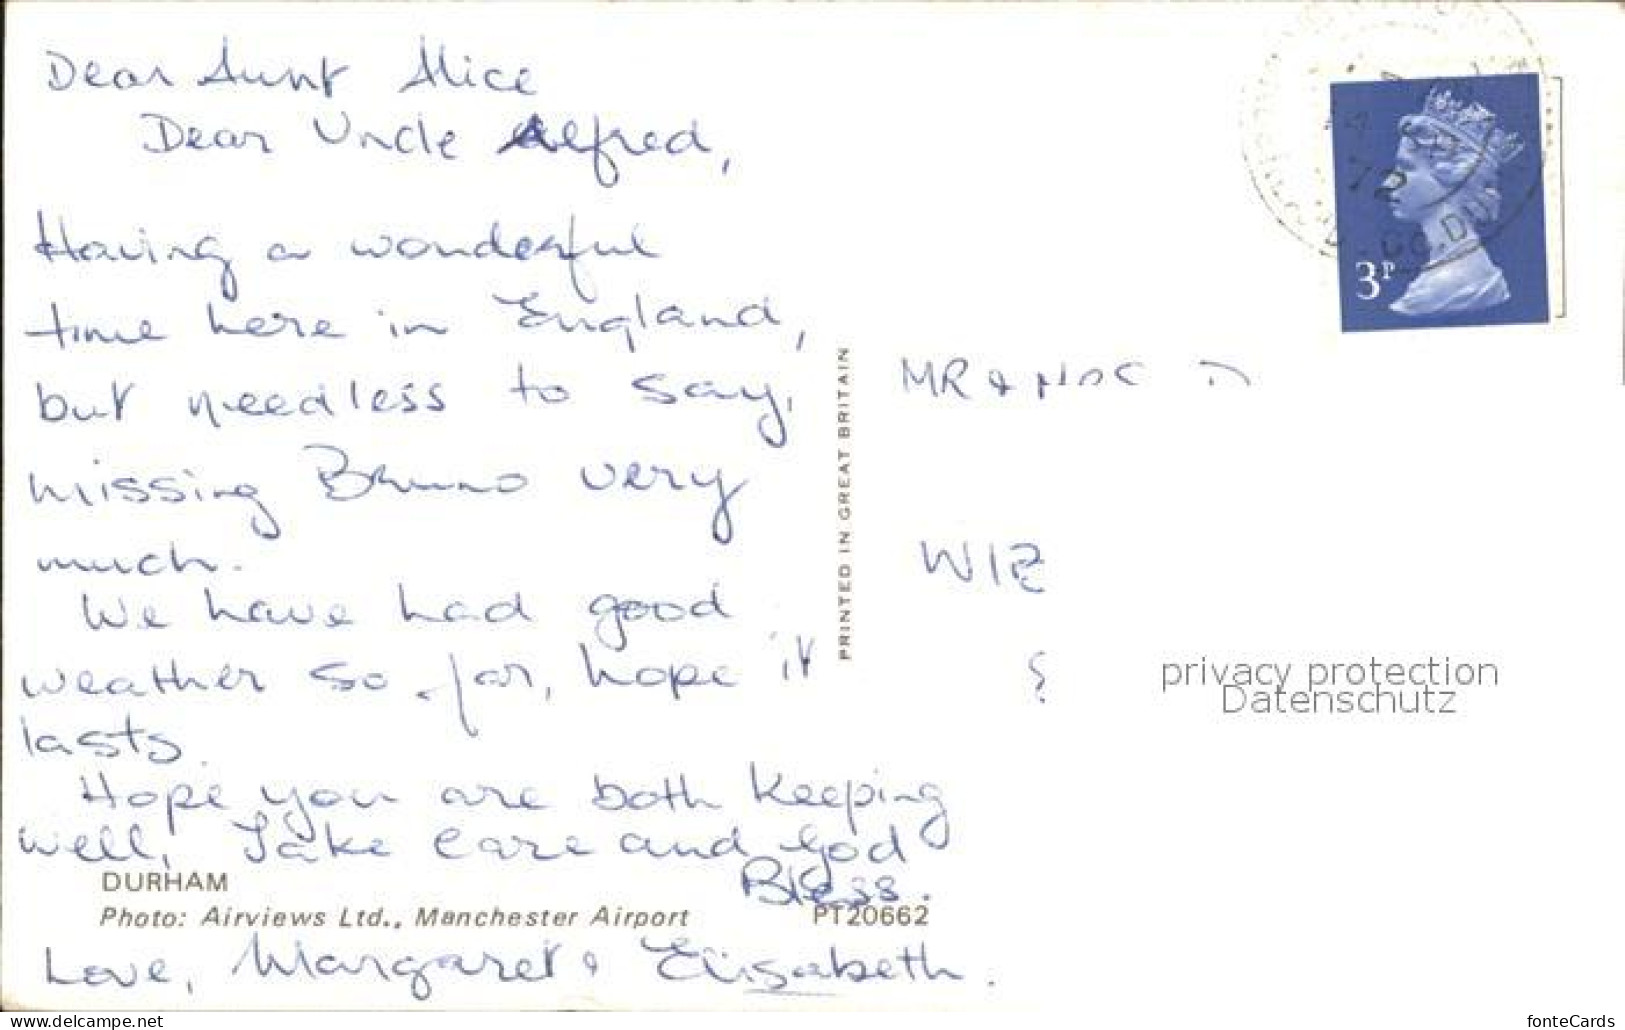 Dear Aunt Alice
Dear Uncle Alfred,
Having a wonderful
time here in England,
but needless to say,
missing Bruno very
much.
We have had good
weather so far, hope it
lasts.
Hope you are both keeping
well, Take care and God
Bless.
DURHAM
Photo: Airviews Ltd., Manchester Airport
PT20662
Love, Margaret & Elisabeth.
PRINTED IN GREAT BRITAIN
3P
72
CO. DU
MR &
privacy protection
Datenschutz
www.delcampe.net
fonteCards